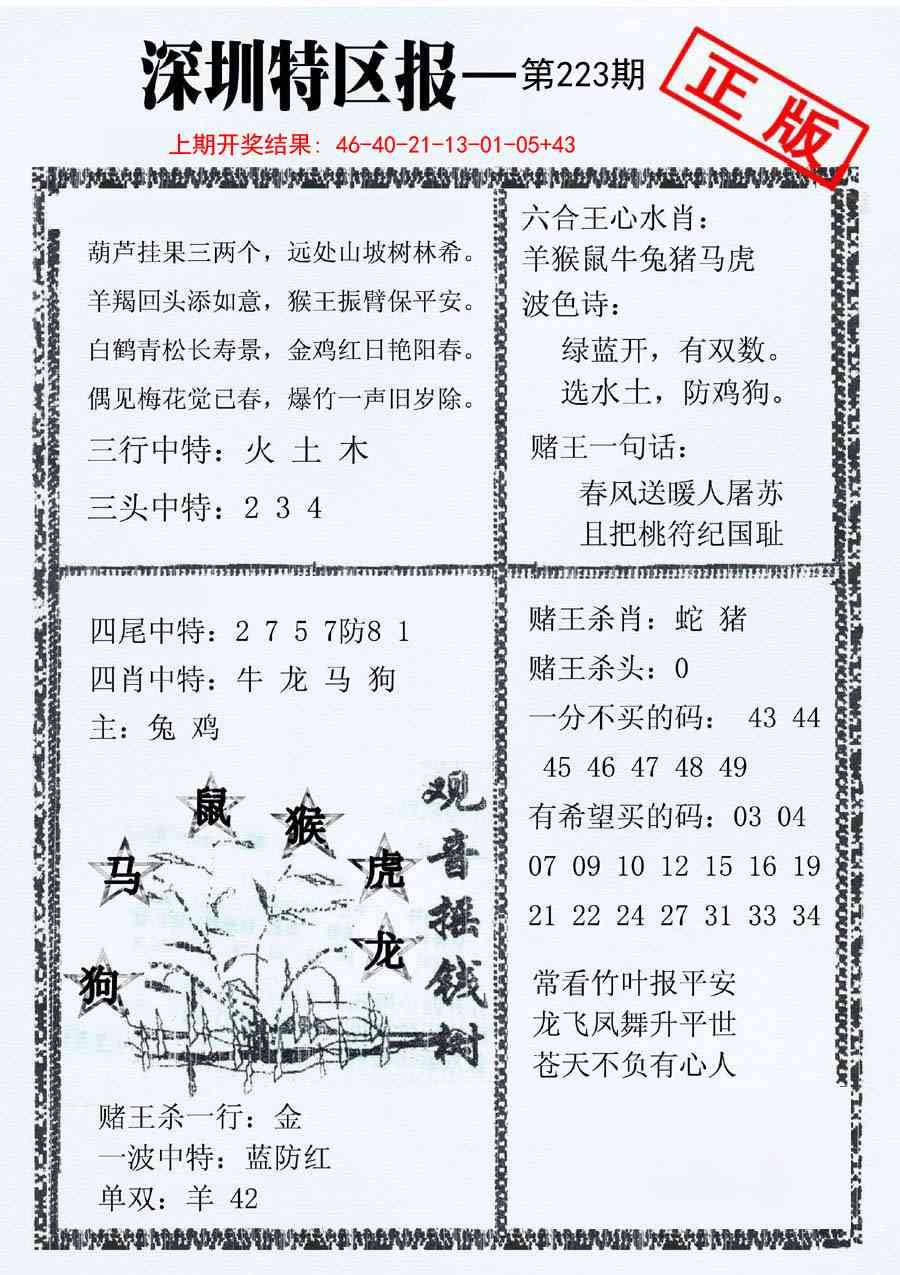 深圳特区报—第223期
正版
上期开奖结果: 46-40-21-13-01-05+43
葫芦挂果三两个，远处山坡树林希。
羊羯回头添如意，猴王振臂保平安。
白鹤青松长寿景，金鸡红日艳阳春。
偶见梅花觉己春，爆竹一声旧岁除。
三行中特：火 土 木
三头中特：2 3 4
六合王心水肖：
羊猴鼠牛兔猪马虎
波色诗：
绿蓝开，有双数。
选水土，防鸡狗。
赌王一句话：
春风送暖人屠苏
且把桃符纪国耻
四尾中特：2 7 5 7防8 1
四肖中特：牛 龙 马 狗
主：兔 鸡
鼠
猴
马
虎
龙
狗
观音摇钱树
赌王杀一行：金
一波中特：蓝防红
单双：羊 42
赌王杀肖：蛇 猪
赌王杀头：0
一分不买的码： 43 44
45 46 47 48 49
有希望买的码：03 04
07 09 10 12 15 16 19
21 22 24 27 31 33 34
常看竹叶报平安
龙飞凤舞升平世
苍天不负有心人